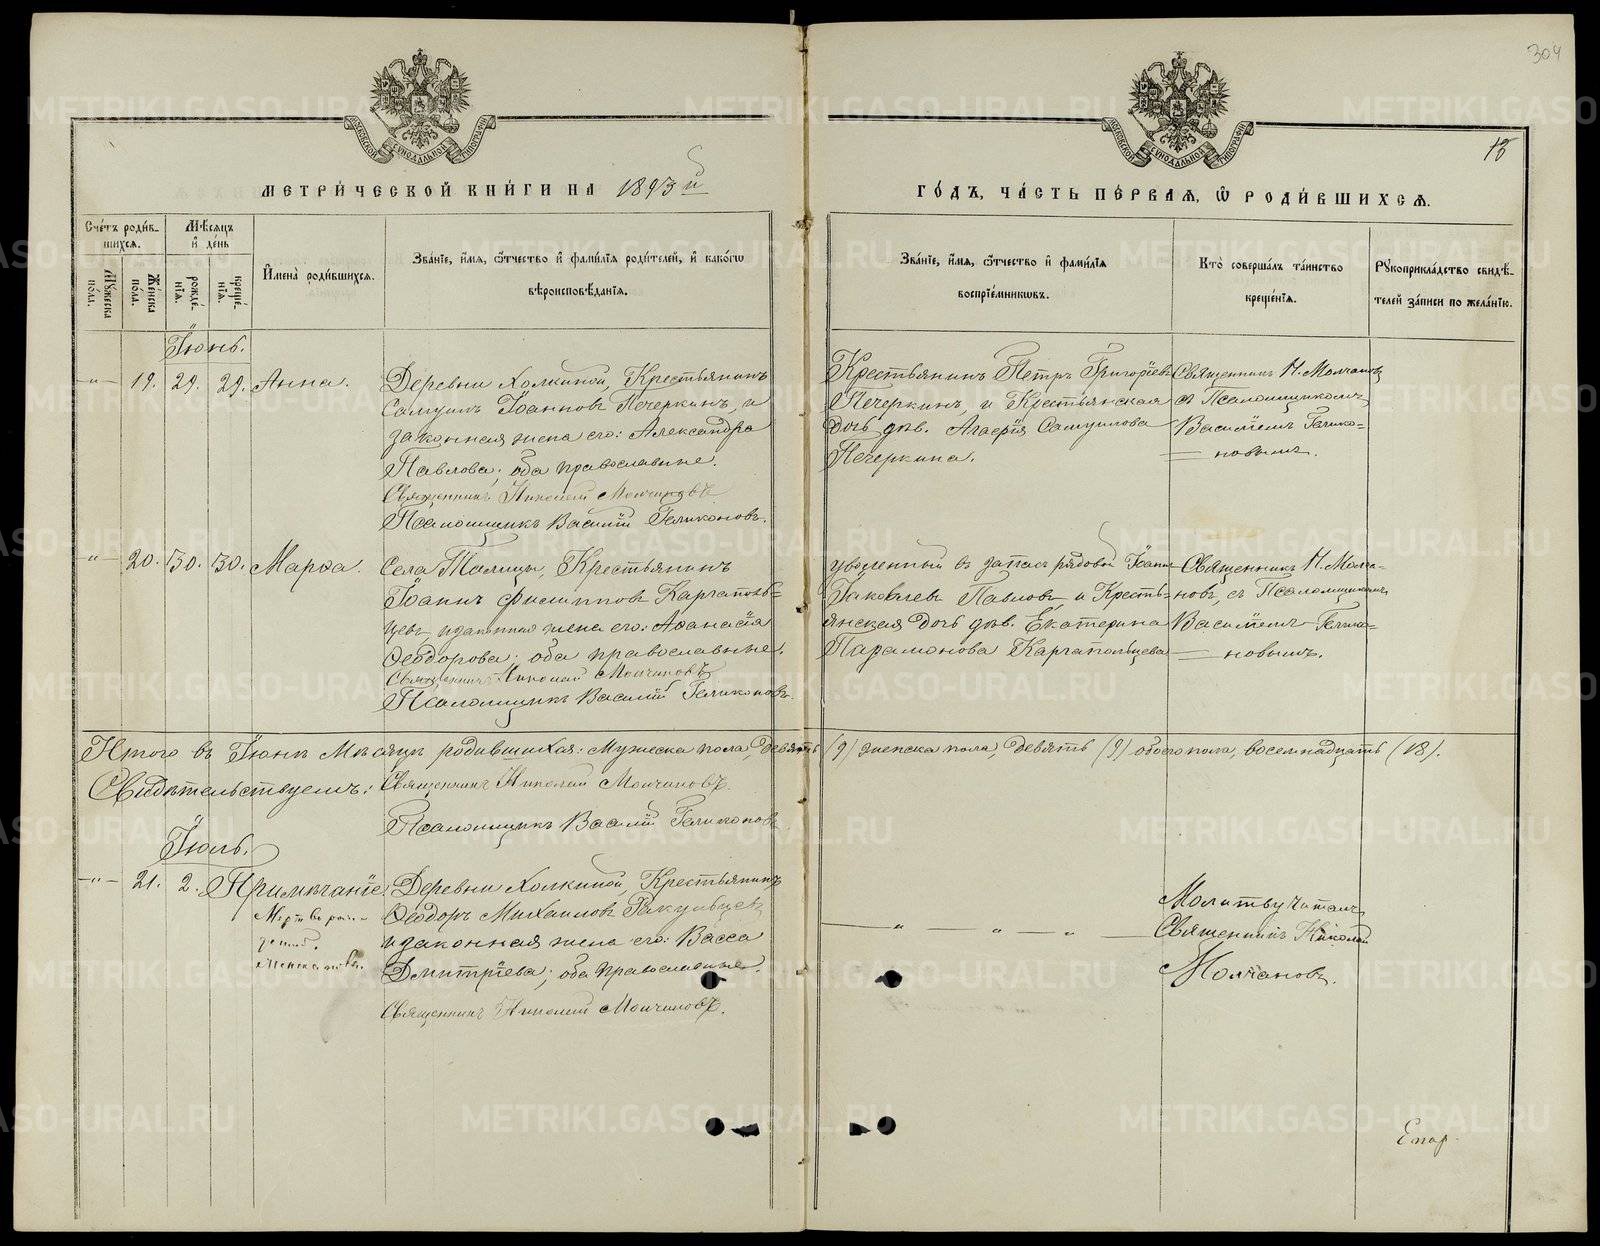 304
18
МОСКОВСКОЙ СУНОДАЛЬНОЙ ТИПОГРАФІИ
МОСКОВСКОЙ СУНОДАЛЬНОЙ ТИПОГРАФІИ
МЕТРИ́ЧЕСКОЙ КНИ́ГИ НА 1893й
ГО́ДЪ, ЧА́СТЬ ПЕ́РВАѦ, Ѿ РОДИ́ВШИХСѦ.
Сче́тъ роди́в-
шихсѧ.
Мѣ́сѧцъ
и҆ де́нь
Мꙋ́жеска
по́ла.
Же́нска
по́ла.
рожде́-
нїѧ.
креще́-
нїѧ.
И҆мена̀ роди́вшихсѧ.
Зва́нїе, и҆́мѧ, ѻ҆́тчество и҆ фамї́лїѧ роди́телей, и҆ како́гѡ
вѣроисповѣ́данїѧ.
Зва́нїе, и҆́мѧ, ѻ҆́тчество и҆ фамї́лїѧ
воспрїе́мникѡвъ.
Кто̀ соверша́лъ та́инство
креще́нїѧ.
Рꙋкоприкла́дство свидѣ́-
телей за́писи по жела́нїю.
Іюнь.
-"- 19. 29. 29. Анна.
Деревни Холкиной, Крестьянинъ
Самуилъ Іоанновъ Печеркинъ, и
законная жена его: Александра
Павлова; оба православные.
Священникъ Николай Молчановъ
Псаломщикъ Василій Геликоновъ.
Крестьянинъ Петръ Григоріевъ
Печеркинъ, и Крестьянская
дочь дѣв. Агаѳія Самуилова
Печеркина.
Священникъ Н. Молчановъ
съ Псаломщикомъ
Василіемъ Гелико-
новымъ.
-"- 20. 30. 30. Марѳа.
Села Талицы, Крестьянинъ
Іоаннъ Филипповъ Каргаполь-
цевъ, и законная жена его: Аѳанасія
Ѳеодорова; оба православные.
Священникъ Николай Молчановъ
Псаломщикъ Василій Геликоновъ.
уволенный въ запасъ рядовой Іоаннъ
Іаковлевъ Павловъ, и Кресть-
янская дочь дѣв. Екатерина
Парамонова Каргапольцева
Священникъ Н. Молча-
новъ, съ Псаломщикомъ
Василіемъ Гелико-
новымъ.
Итого въ Іюнѣ Мѣсяцѣ родившихся: Мужеска пола, Девять (9) женска пола, Девять (9) обоего пола, восемнадцать (18).
Свидѣтельствуемъ: Священникъ Николай Молчановъ.
Псаломщикъ Василій Геликоновъ
Іюль.
-"- 21. 2. Примѣчаніе.
Мертворож-
денный.
Женска пола.
Деревни Холкиной, Крестьянинъ
Ѳеодоръ Михаиловъ Ракульцевъ
и законная жена его: Васса
Димитріева; оба православные.
Священникъ Николай Молчановъ.
— " — " — " —
Молитву читалъ
Священникъ Николай
Молчановъ.
Епар-
METRIKI.GASO-URAL.RU